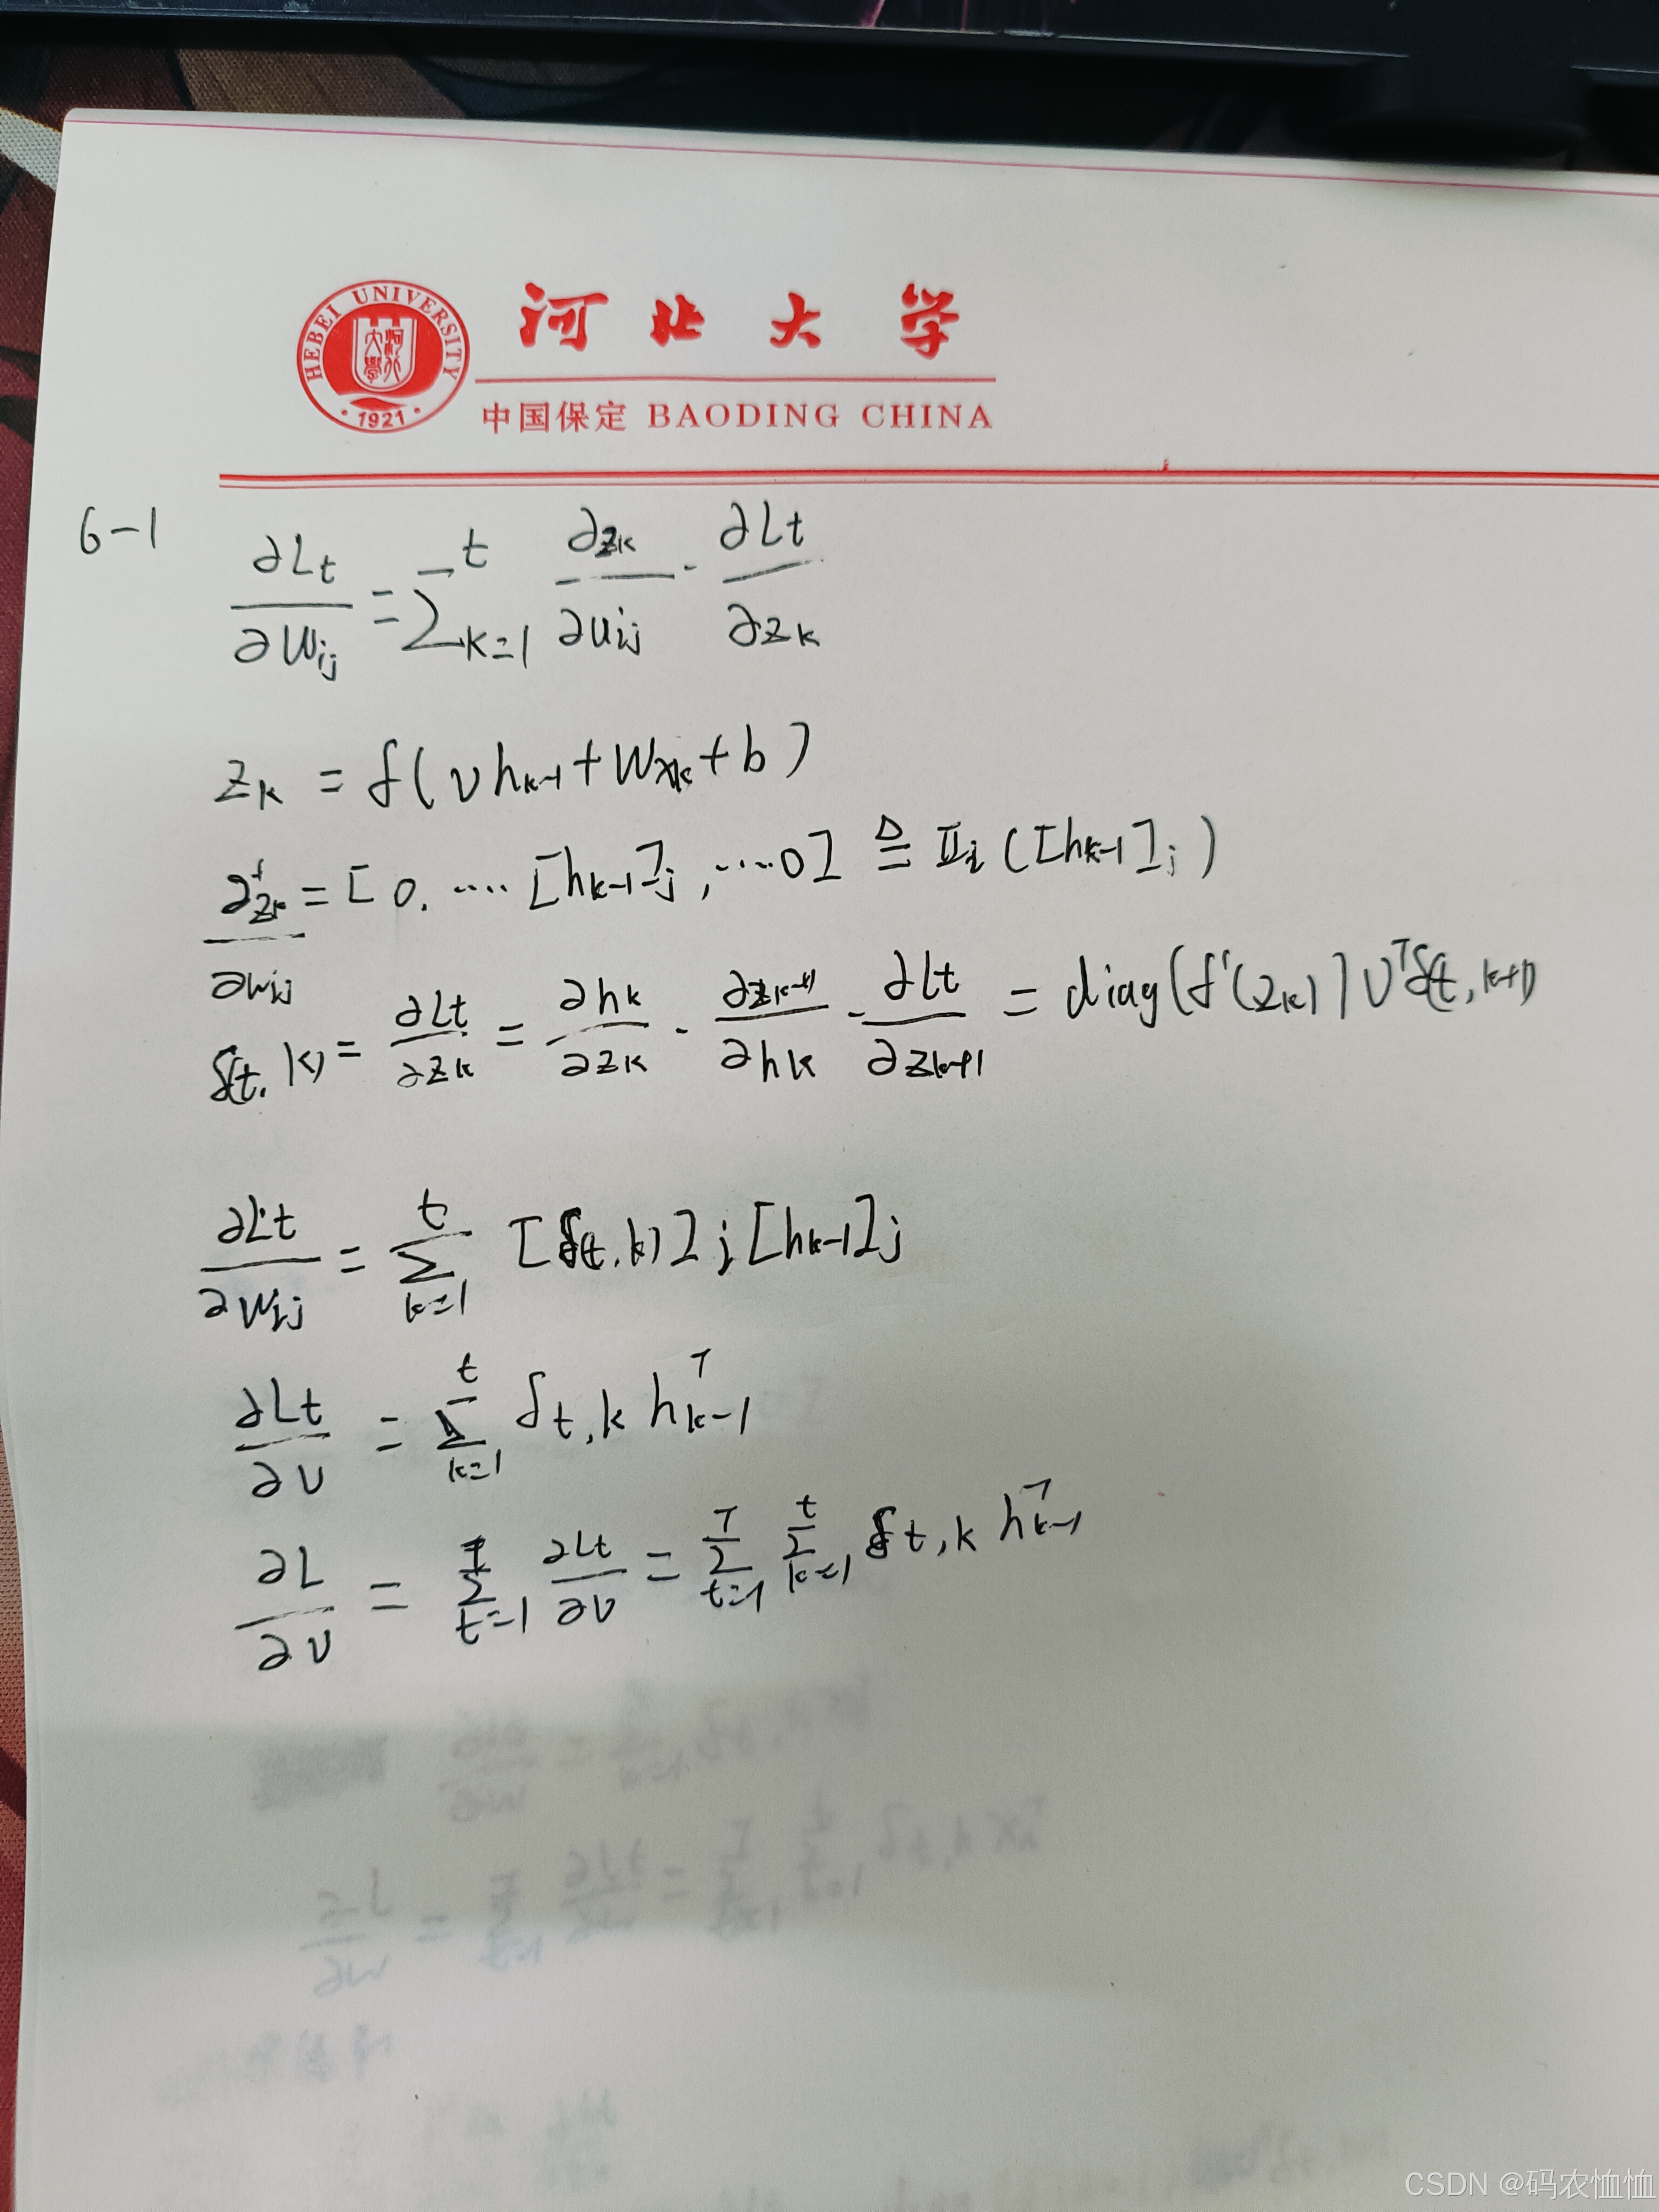 HEBEI UNIVERSITY
1921
河北大学
中国保定 BAODING CHINA
6-1
∂Lt/∂Wij = ∑_{k=1}^{t} ∂zk/∂uij · ∂Lt/∂zk
zk = f(Uhk-1+Wxk+b)
∂⁺zk/∂wij = [0. ···· [hk-1]j, ····0] ≜ 𝕀i([hk-1]j)
δ(t, k) = ∂Lt/∂zk = ∂hk/∂zk · ∂zk+1/∂hk · ∂Lt/∂zk+1 = diag(f'(zk))U^T δ(t, k+1)
∂Lt/∂Wij = ∑_{k=1}^{t} [δ(t,k)]i [hk-1]j
∂Lt/∂U = ∑_{k=1}^{t} δt,k h^T_{k-1}
∂L/∂U = ∑_{t=1}^{T} ∂Lt/∂U = ∑_{t=1}^{T} ∑_{k=1}^{t} δt,k h^T_{k-1}
CSDN @码农恤恤